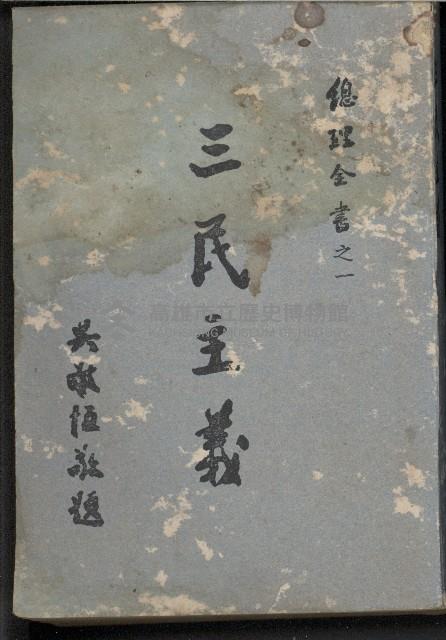 總理全書之一
三民主義
吳敬恒敬題
高雄市立歷史博物館
KAOHSIUNG MUSEUM OF HISTORY